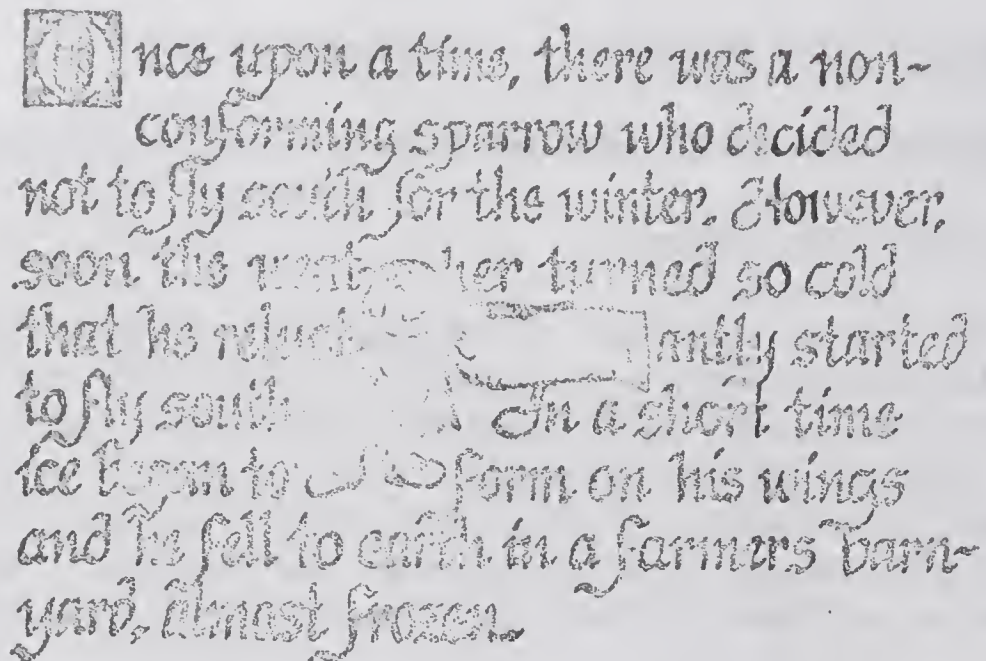 Once upon a time, there was a non-
conforming sparrow who decided
not to fly south for the winter. However,
soon the weather turned so cold
that he reluctantly started
to fly south. In a short time
ice began to form on his wings
and he fell to earth in a farmers barn-
yard, almost frozen.